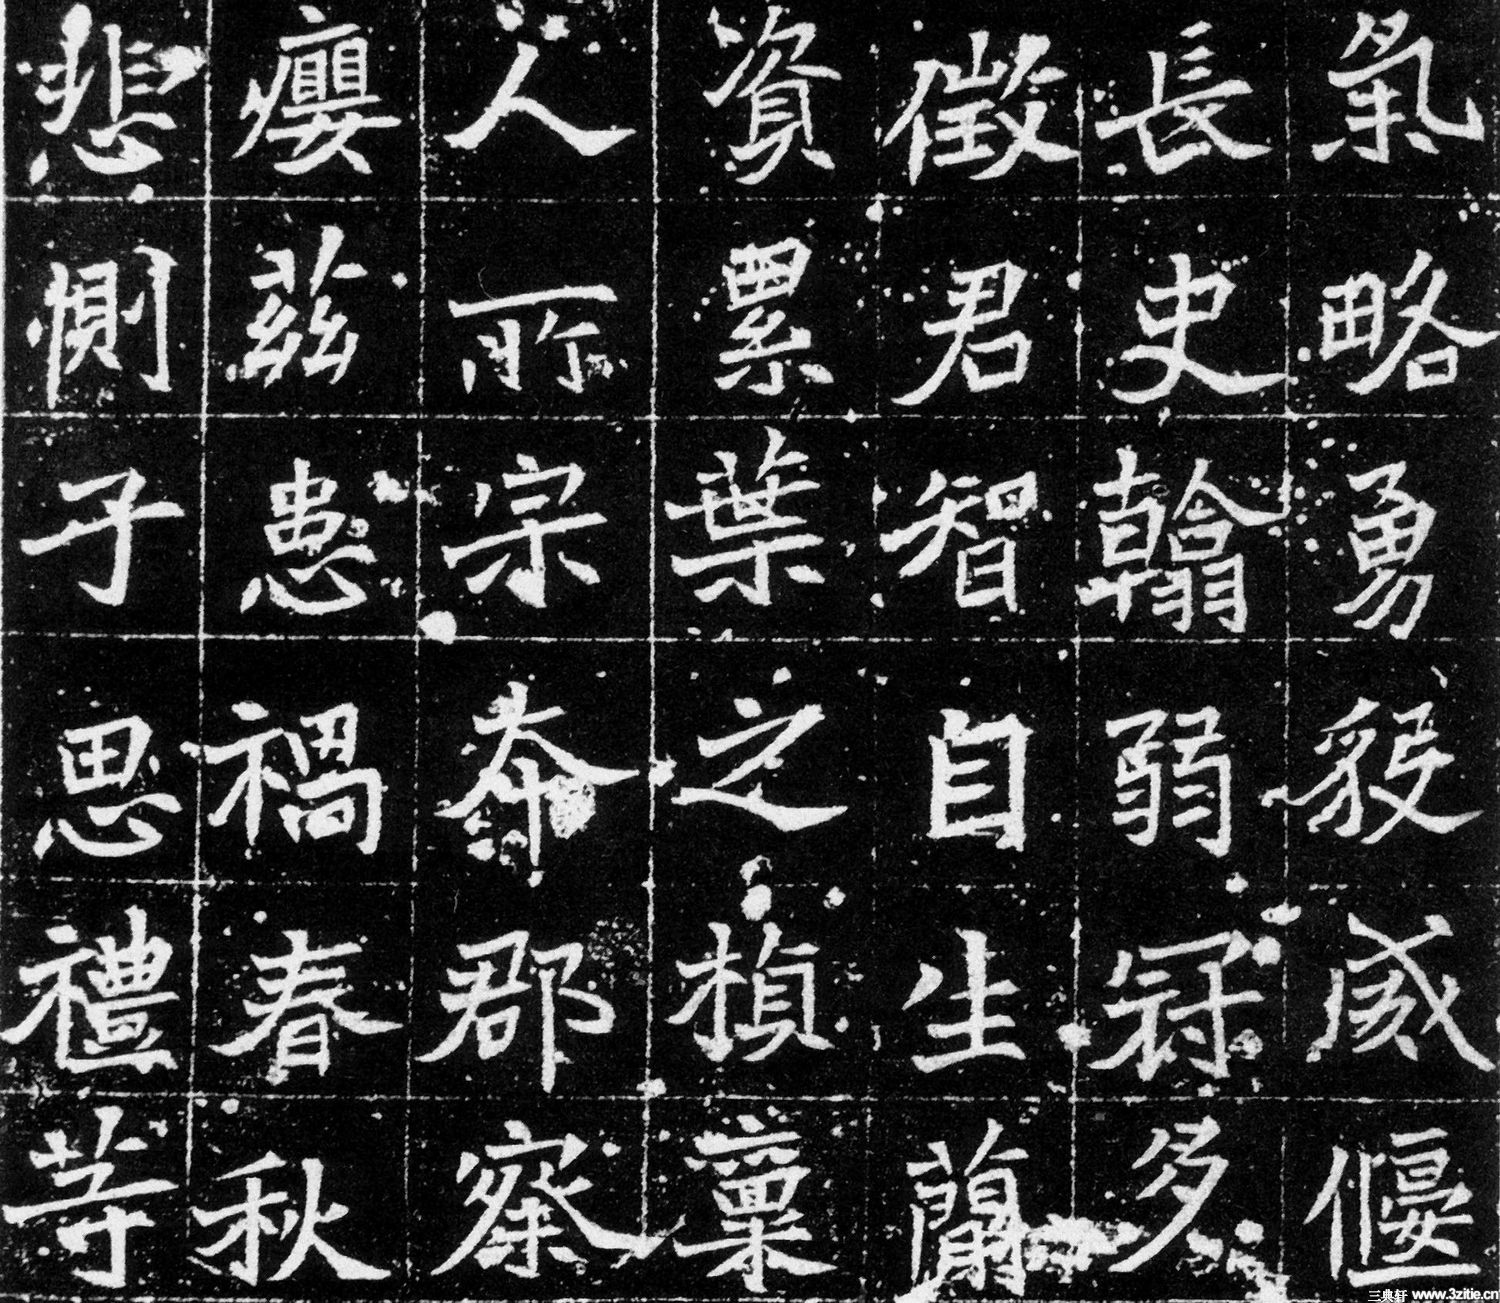 氣略勇毅威偃
長史翰弱冠多
徵君智自生蘭
資累葉之楨稾
人所宗奉郡察
癭茲患禍春秋
悲惻子思禮等
三典轩 www.3zitie.cn